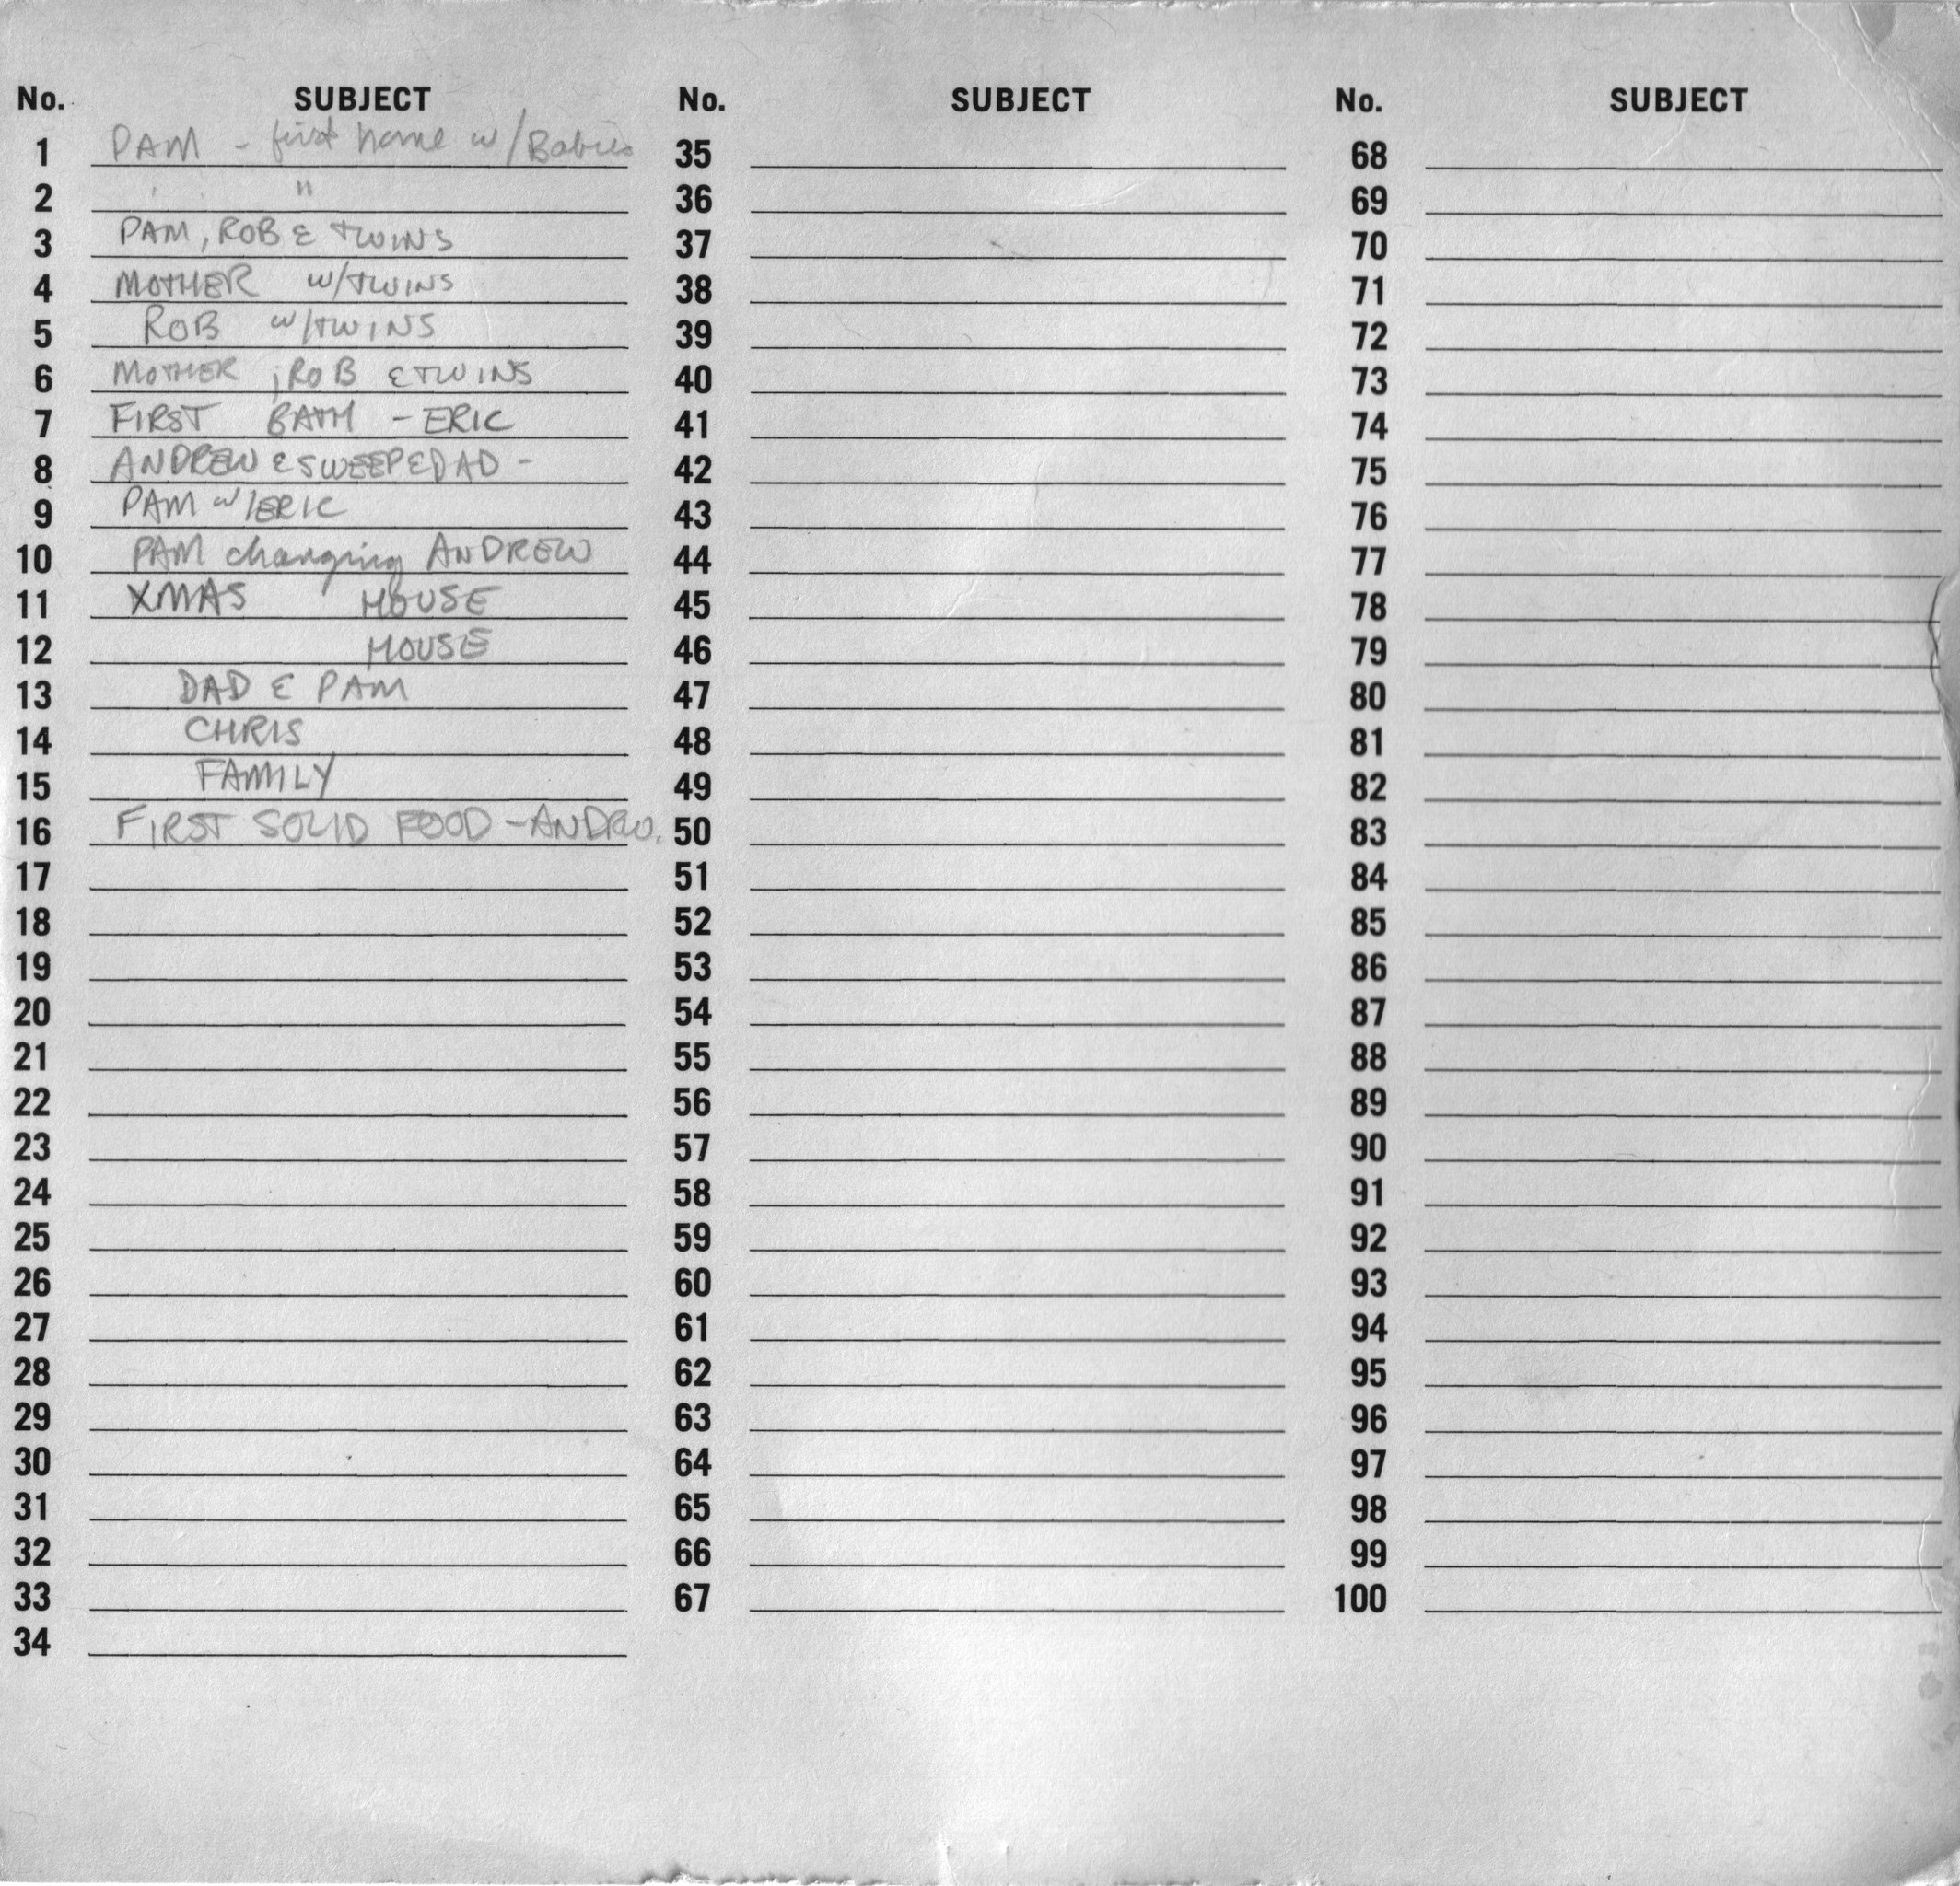 No. SUBJECT
1 PAM - first home w/Babies
2 "
3 PAM, ROB & TWINS
4 MOTHER w/TWINS
5 ROB w/TWINS
6 MOTHER ; ROB & TWINS
7 FIRST BATH - ERIC
8 ANDREW & SWEEPEDAD -
9 PAM w/ERIC
10 PAM changing ANDREW
11 XMAS HOUSE
12 HOUSE
13 DAD & PAM
14 CHRIS
15 FAMILY
16 FIRST SOLID FOOD - ANDRW.
17
18
19
20
21
22
23
24
25
26
27
28
29
30
31
32
33
34
No. SUBJECT
35
36
37
38
39
40
41
42
43
44
45
46
47
48
49
50
51
52
53
54
55
56
57
58
59
60
61
62
63
64
65
66
67
No. SUBJECT
68
69
70
71
72
73
74
75
76
77
78
79
80
81
82
83
84
85
86
87
88
89
90
91
92
93
94
95
96
97
98
99
100